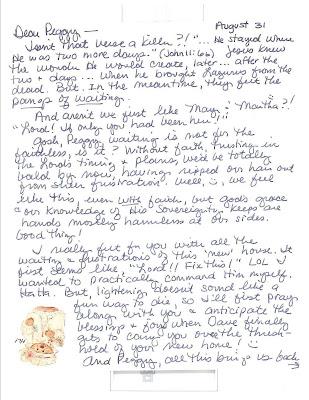 Dear Peggy —
August 31
Isn't that verse a killer?! "... He stayed where
He was two more days." (John 11:6b) Jesus knew
the wonder He would create, later... after the
two + days... when he brought Lazarus from the
dead. But. In the meantime, they felt the
pangs of waiting.
And aren't we just like Mary + Martha?!
"Lord! If only you had been here!"
Gosh, Peggy, waiting is not for the
faithless, is it? Without faith, trusting in
the Lord's timing + plans, we'd be totally
bald by now, having ripped our hair out
from sheer frustration! Well, we feel
like this, even with faith, but God's grace
+ our knowledge of His Sovereignty keeps are
hands mostly harmless at our sides.
Good thing!
I really felt for you with all the
waiting + frustrations of this "new" house. At
first seems like, "Lord!! Fix this!" LOL I
wanted to practically command Him myself.
Hahh. But, lightening doesn't sound like a
fun way to die, so I'll first pray
along with you + anticipate the
blessing + joy when Dave finally
gets to carry you over the thresh-
hold of your new home!
And Peggy, all this brings us back